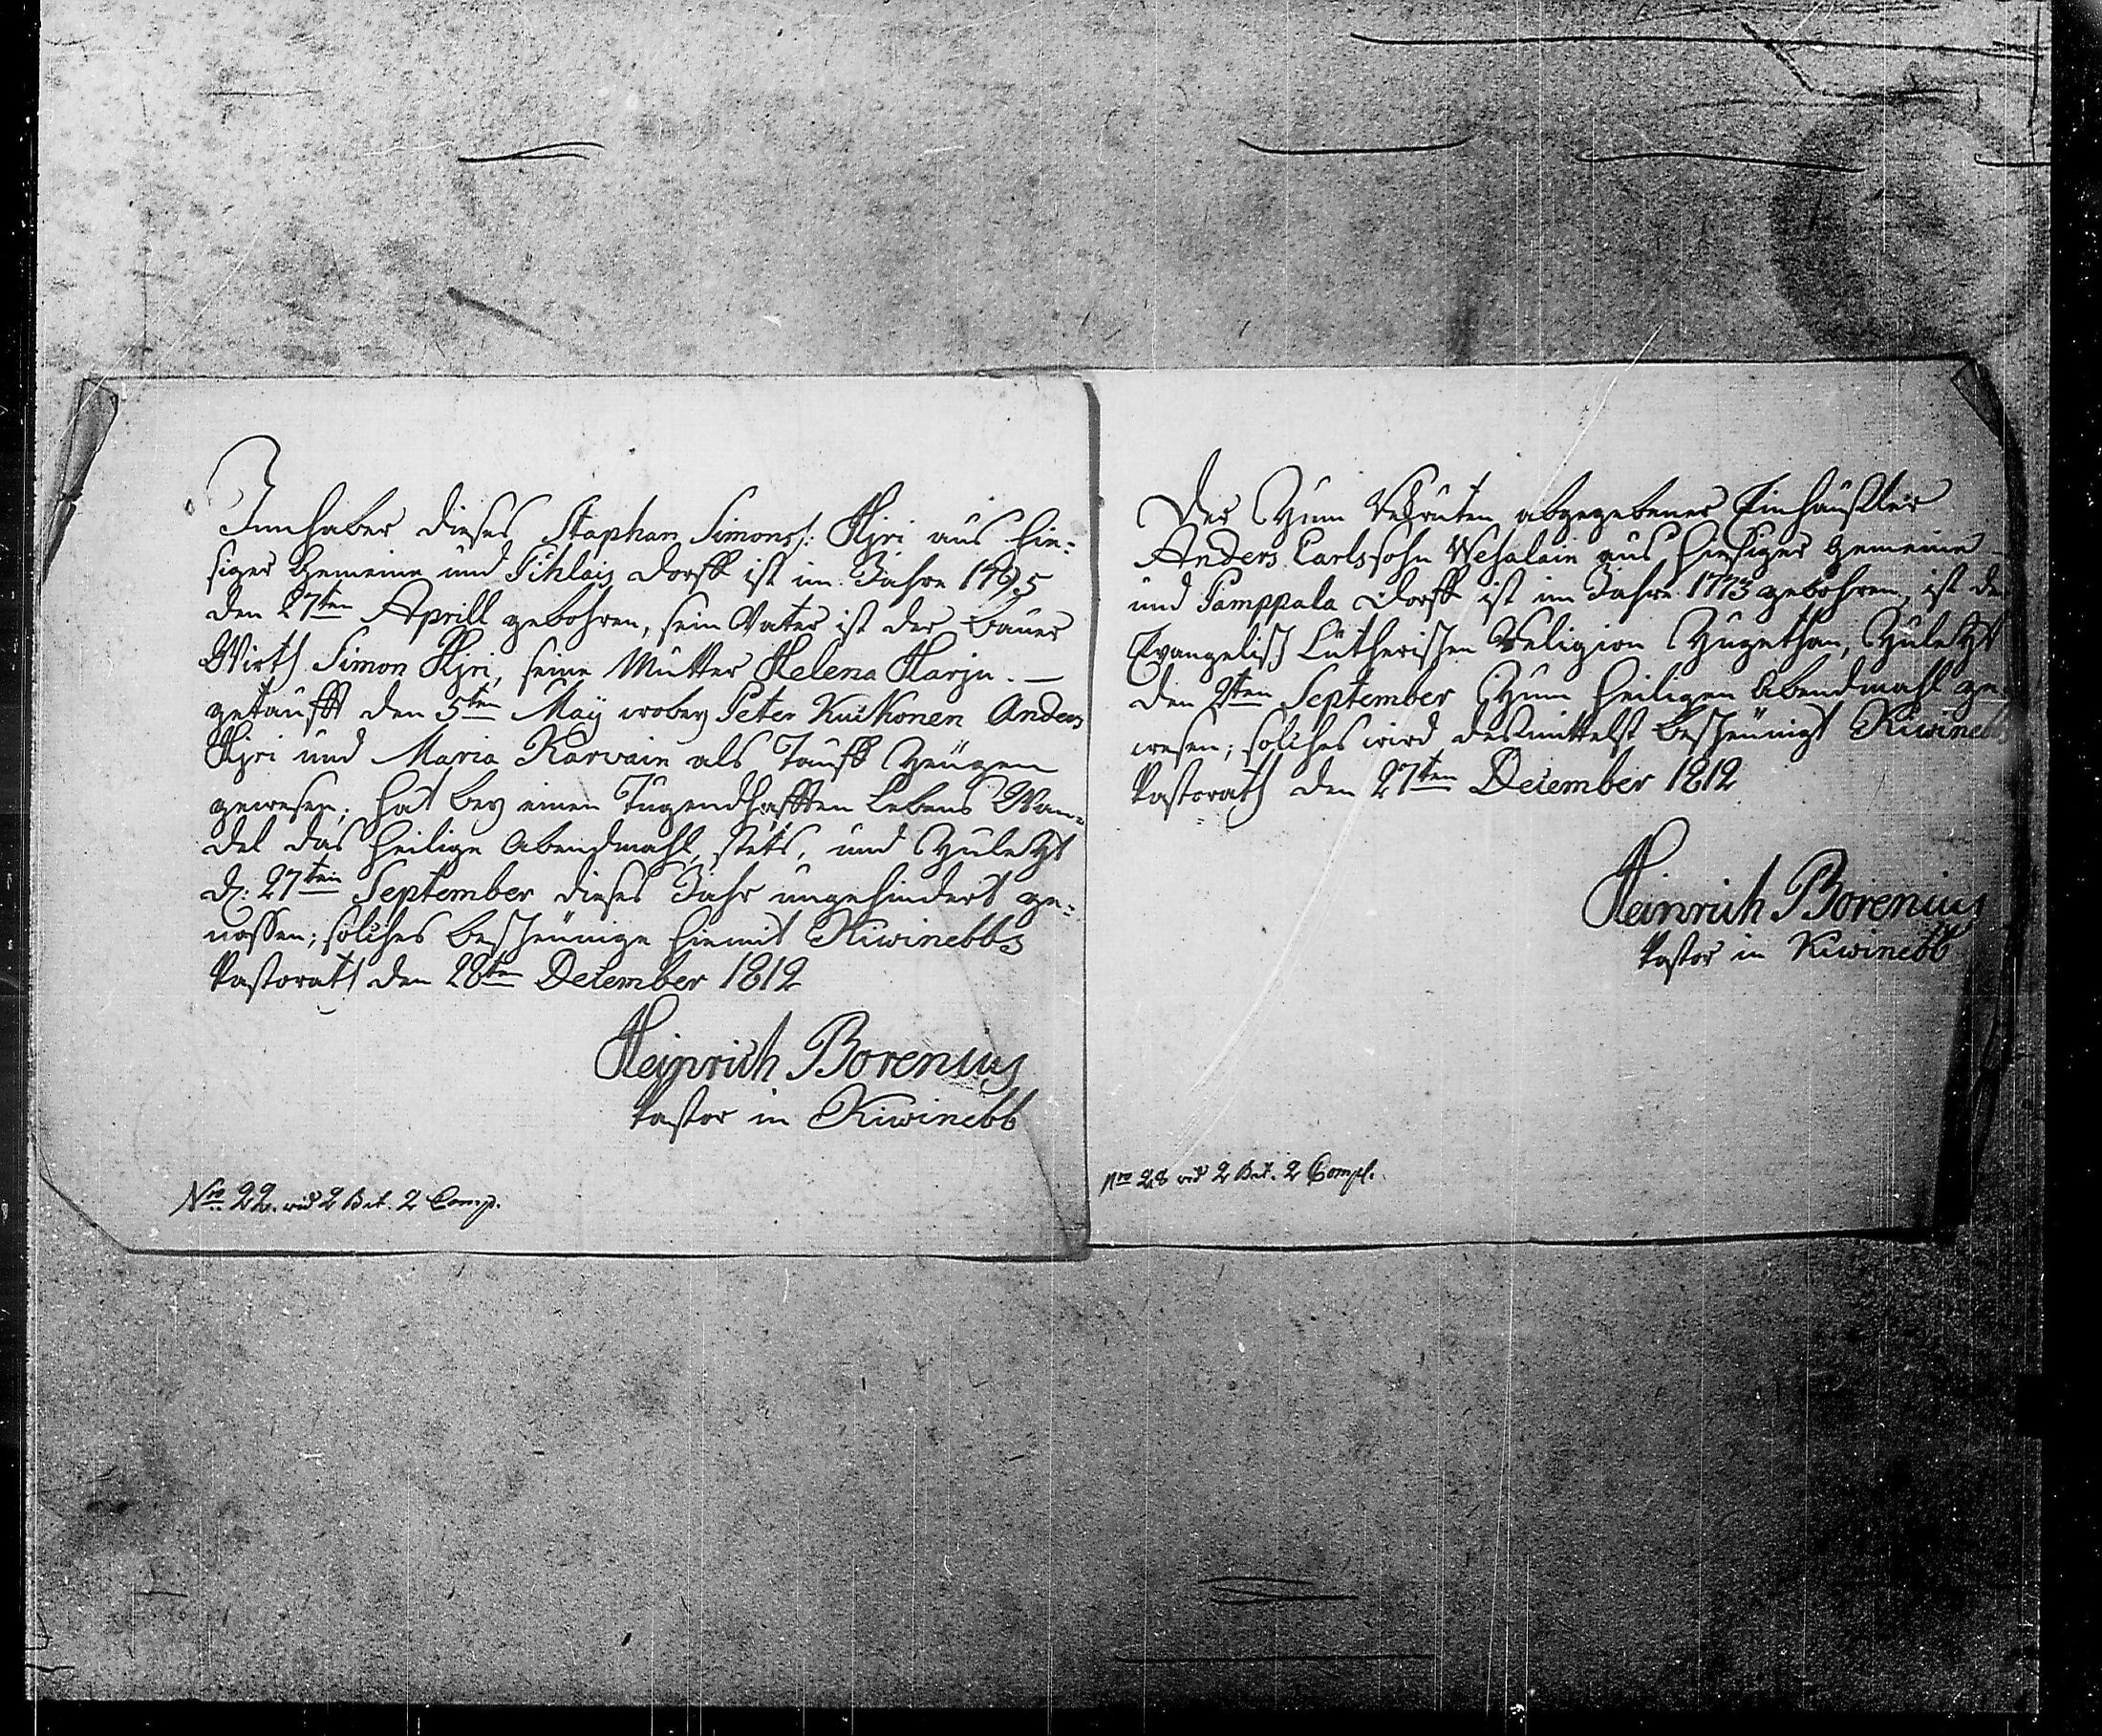 Innhaber dieses Staphan Simons: Kjri aus hie-
siger Gemeine und Pihlais Dorff ist im Jahre 1795
den 27ten Aprill gebohren, sein Vater ist der Bauer
Wirth Simon Kjri, seine Mutter Helena Harju. —
getaufft den 5ten May wobey Peter Kuikonen Anders
Kjri und Maria Karvain als Tauff Zeugen
gewesen; hat bey einen Tugendhafften Lebens Wan-
del das heilige Abendmahl, stets, und Zuletzt
d: 27ten September dieses Jahr ungehindert ge-
nossen; solches bescheinige hiemit Kiwinebbs
Pastorath den 28ten December 1812
Heinrich Borenius
Pastor in Kiwinebb
Nro 22. 2 Bat. 2 Comp.
Der Zum Rekruten abgegebener Einhäusler
Anders Carlssohn Wesalain aus hiesiger Gemeine
und Pamppala Dorff ist im Jahre 1773 gebohren, ist der
Evangelisch Lutherischen Religion Zugethan, Zuletzt
den 9ten September Zum heiligen Abendmahl ge-
wesen; solches wird desmittelst bescheinigt Kiwinebbs
Pastorath den 27ten December 1812
Heinrich Borenius
Pastor in Kiwinebb
Nro 28 2 Bat. 2 Comp.